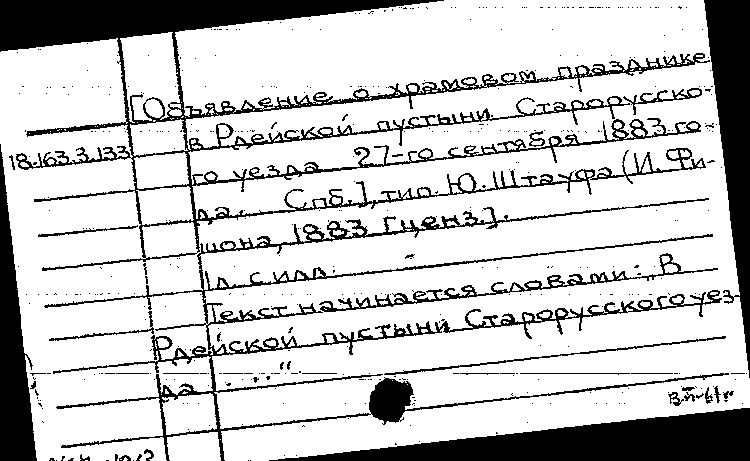 [Объявление о храмовом празднике
в Рдейской пустыни Старорусско-
18.163.3.133
го уезда 27-го сентября 1883 го-
да. Спб.], тип. Ю. Штауфа (И. Фи-
шона, 1883 [ценз.].
1 л. с илл.
Текст начинается словами: „В
Рдейской пустыни Старорусского уез-
да . . ."